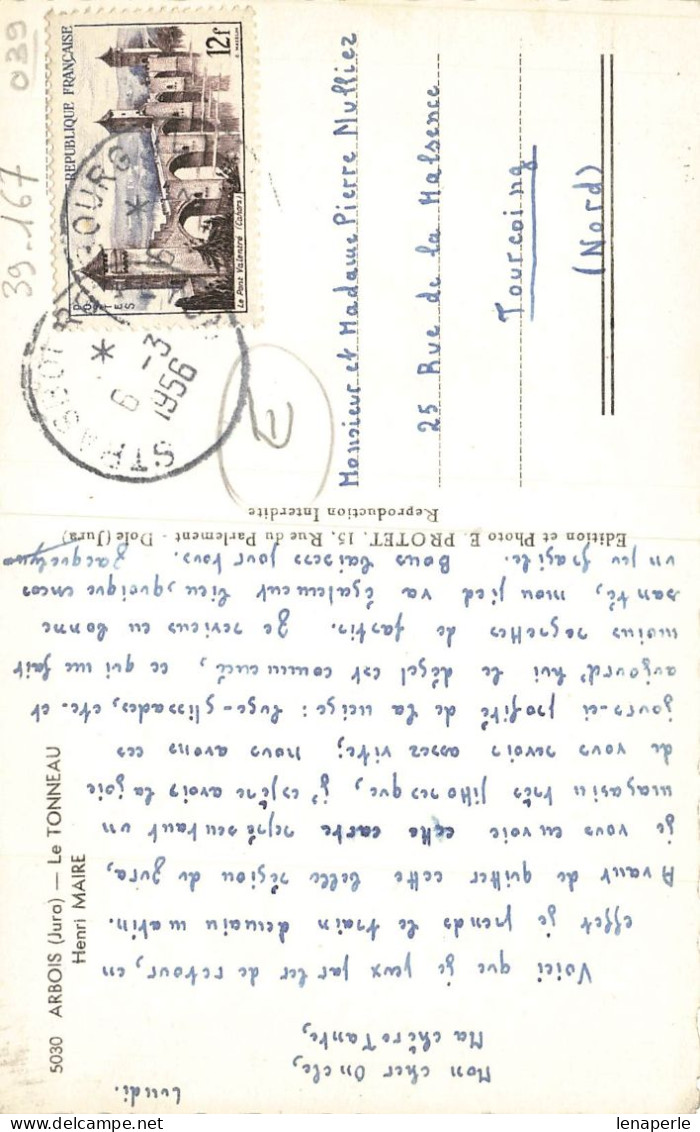 039
39-167
REPUBLIQUE FRANÇAISE
12f
POSTES
Le Pont Valentré (Cahors)
STRASBOURG
6 - 3
1956
E
Monsieur et Madame Pierre Mulliez
25 Rue de la Malsence
Tourcoing
(Nord)
Edition et Photo E. PROTET, 15, Rue du Parlement - Dole (Jura)
Reproduction Interdite
5030 ARBOIS (Jura) — Le TONNEAU
Henri MAIRE
Lundi.
Mon cher Oncle,
Ma chère Tante,
Voici que je peux parler de retour, en
effet je prends le train demain matin.
Avant de quitter cette belle région du Jura,
je vous envoie cette carte représentant un
magasin très pittores que, j'espère avoir la joie
de vous revoir assez vite; nous avons ces
jours-ci profité de la neige : luge-glissades, etc. et
aujourd'hui le dégel est commencé, ce qui me fait
moins regretter de partir. Je reviens en bonne
santé, mon pied va également bien, quoique encore
un peu fragile. Bons baisers pour tous.
Jacqueline
lenaperle